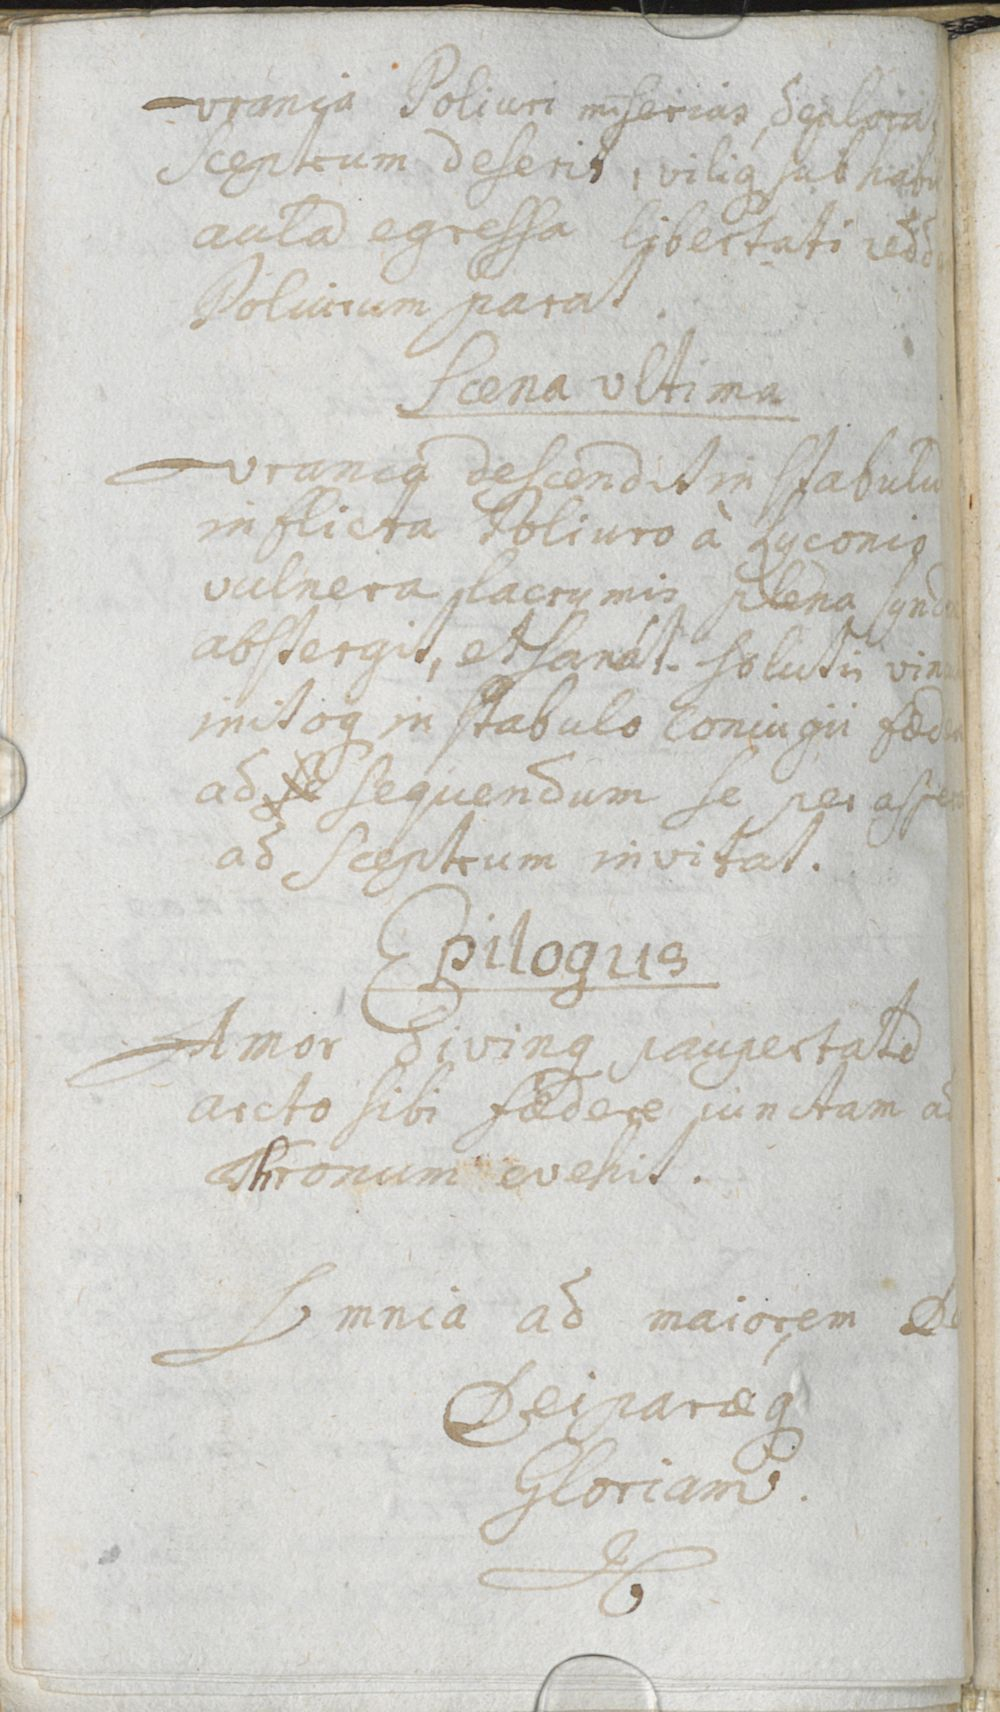 Urania Poliuri miserias deplora
Sceptrum deserit, viliq sub habi
aula egressa libertati redd
Poliurum parat.
Scena ultima
Urania descendit in stabulu
inflicta Poliuro à Lyconio
vulnera lacrymis plena synd
abstergit, et sanat. solutis vin
initoq in stabulo coniugii fœd
ad sequendum se per aspe
ad Sceptrum invitat.
Epilogus
Amor divinq paupertatē
arcto sibi fœdere junctam ad
Thronum evehit.
Omnia ad maiorem De
Deiparæq
Gloriam.